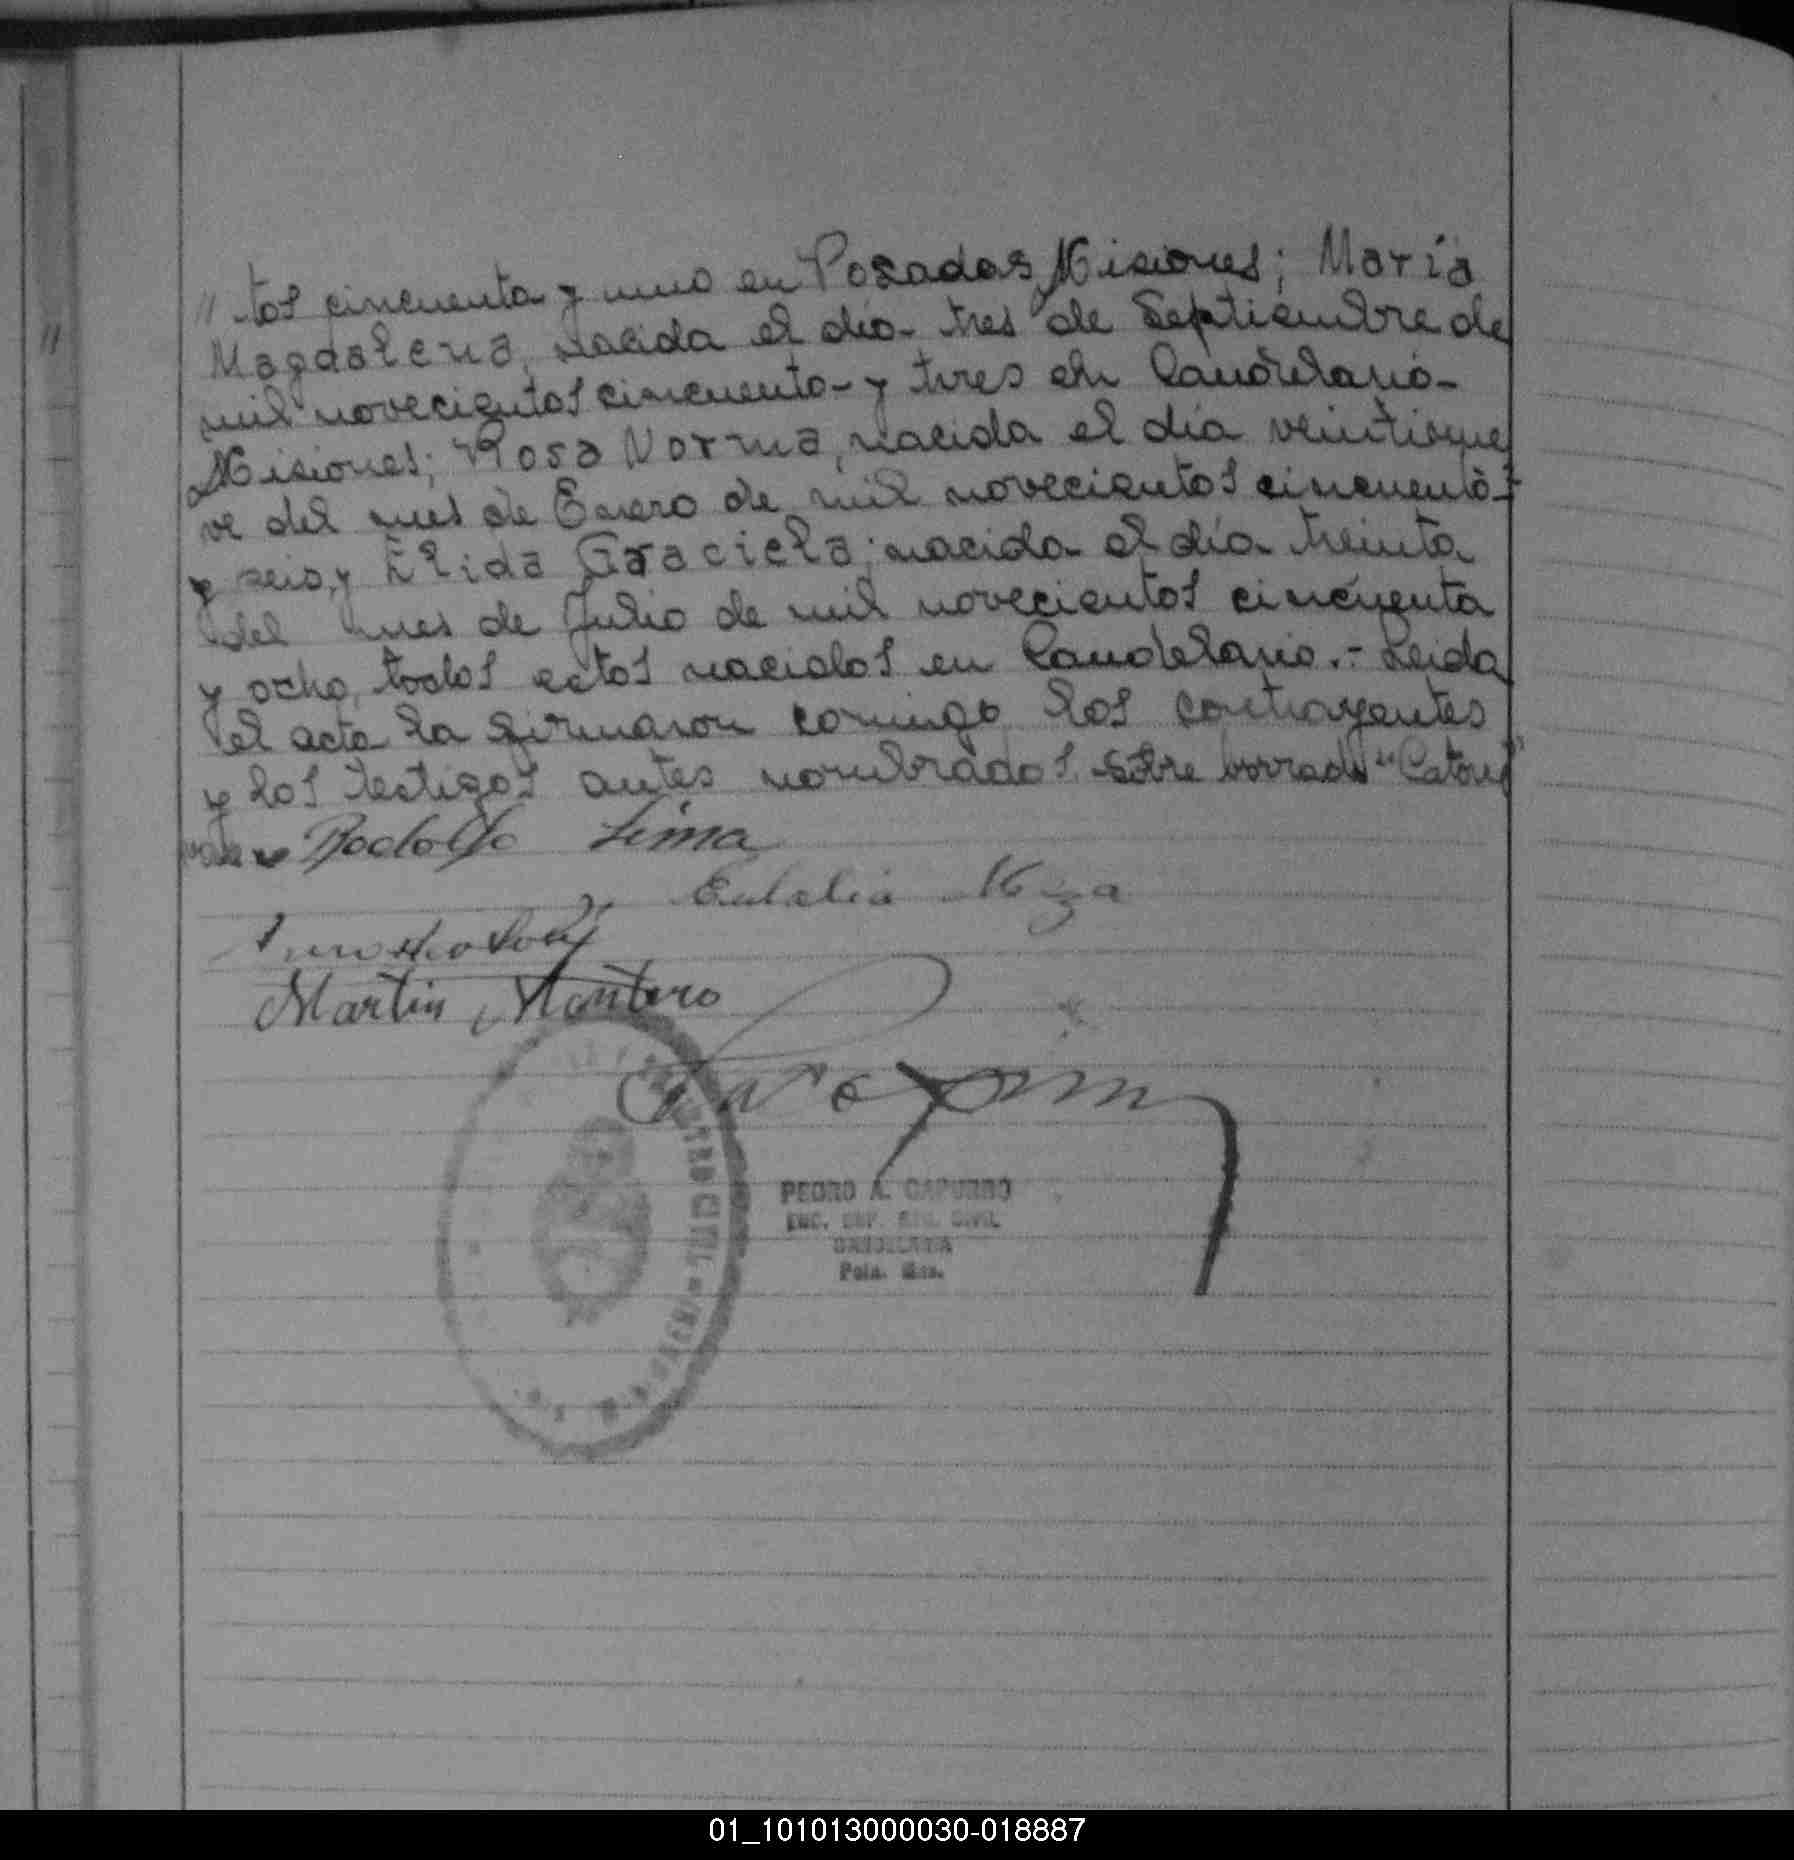 // tos cincuenta y uno en Posadas Misiones; María
Magdalena, nacida el día tres de Septiembre de
mil novecientos cincuenta y tres en Candelaria
Misiones; Rosa Norma, nacida el día veintinue
ve del mes de Enero de mil novecientos cincuenta
y seis, y Elida Graciela; nacida el día treinta
del mes de Julio de mil novecientos cincuenta
y ocho, todos estos nacidos en Candelaria.- Leida
el acta la firmaron comigo los contrayentes
y los testigos antes nombrados. Sobre borrado "Catorce"
vale
Rodolfo Lima
Eulalia
Martin Montero
PEDRO A. CAPURRO
ENC. REG. CIVIL
CANDELARIA
01_101013000030-018887